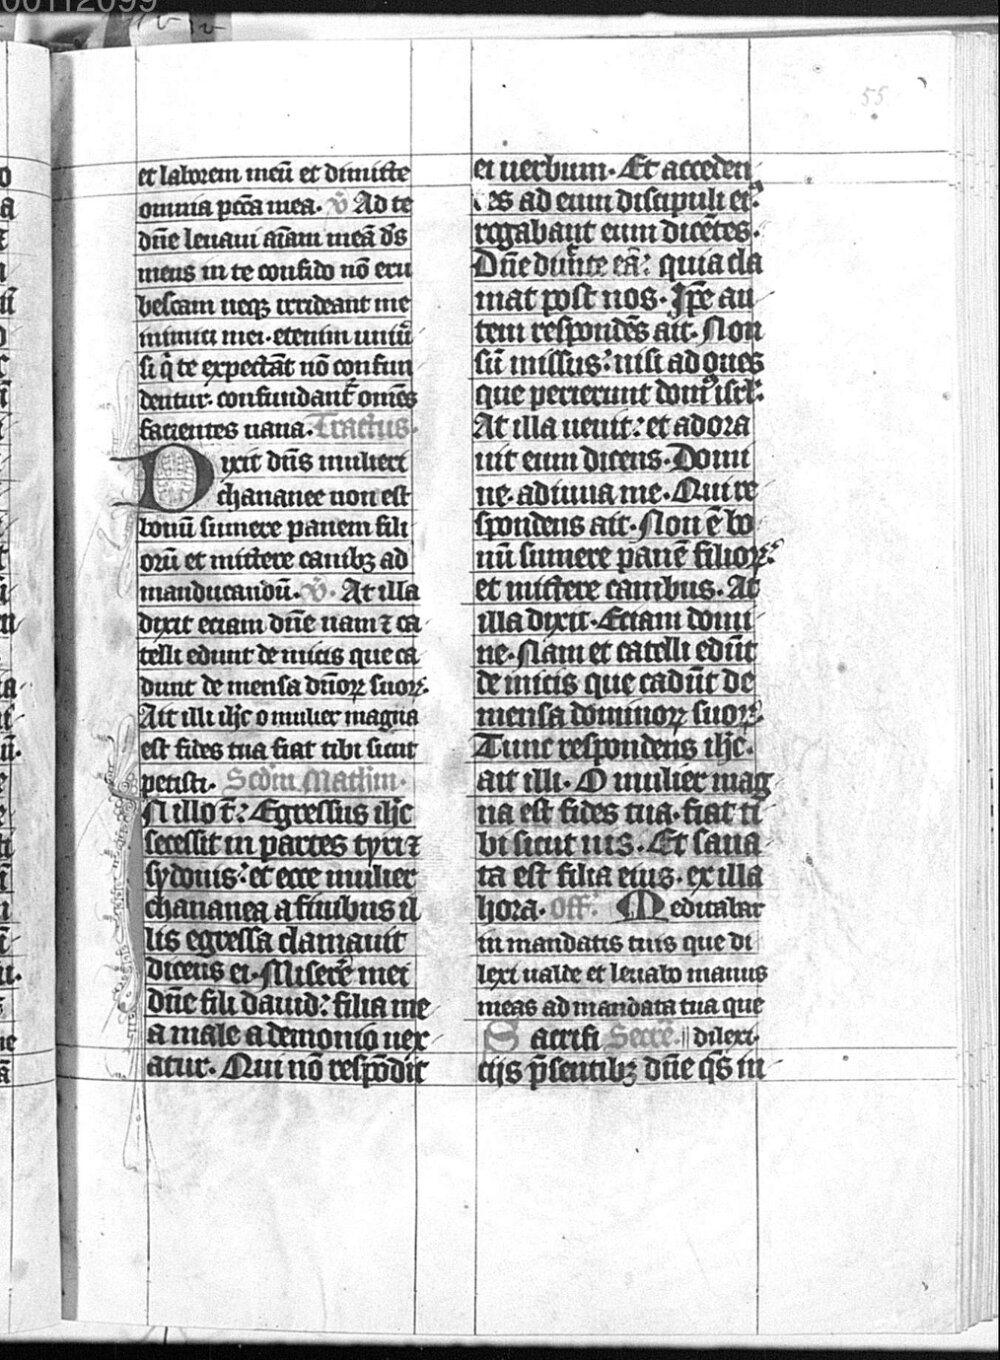 00112099
55
et laborem meū et dimitte
omnia pccā mea. v̄ Ad te
dn̄e leuaui aīam meā ds̄
meus in te confido nō eru
bescam neqꝫ irrideant me
inimici mei. etenim uniū
si q̄ te expectāt nō confun
dentur. confundant᷑ omēs
facientes uana. Tractus.
Dixit dn̄s mulieri
chananee non est
bonū sumere panem fili
orū et mittere canibꝫ ad
manducandū. v̄. At illa
dixit eciam dn̄e nam ⁊ ca
telli edunt de micis que ca
dunt de mensa dn̄oꝝ suoꝝ.
Ait illi ih̄c o mulier magna
est fides tua fiat tibi sicut
petisti. Scd̄m Mathm̄.
N illo t̄: Egressus ih̄c
secessit in partes tyri ⁊
sydonis: et ecce mulier
chananea a finibus il
lis egressa clamauit
dicens ei. Miserē mei
dn̄e fili dauid: filia me
a male a demonio uex
atur. Qui nō respōdit
ei uerbum. Et acceden
tes ad eum discipuli ei᷒:
rogabant eum dicētes.
Dn̄e dimitte eā: quia cla
mat post nos. Ip̄e au
tem respondēs ait. Non
sū missus: nisi ad oues
que perierunt dom᷒ isrl̄:
At illa uenit: et adora
uit eum dicens. Domi
ne. adiuua me. Qui re
spondens ait. Non ē bo
nū sumere panē filioꝝ:
et mittere canibus. At
illa dixit. Etiam domi
ne. Nam et catelli edūt
de micis que cadūt de
mensa dominoꝝ suoꝝ.
Tunc respondens ih̄c.
ait illi. O mulier mag
na est fides tua. fiat ti
bi sicut uis. Et sana
ta est filia eius. ex illa
hora. Off. Meditabar
in mandatis tuis que di
lexi ualde et leuabo manus
meas ad mandata tua que
Sacrifi Secrē. || dilexi.
cijs p̄sentibꝫ dn̄e qs̄ in